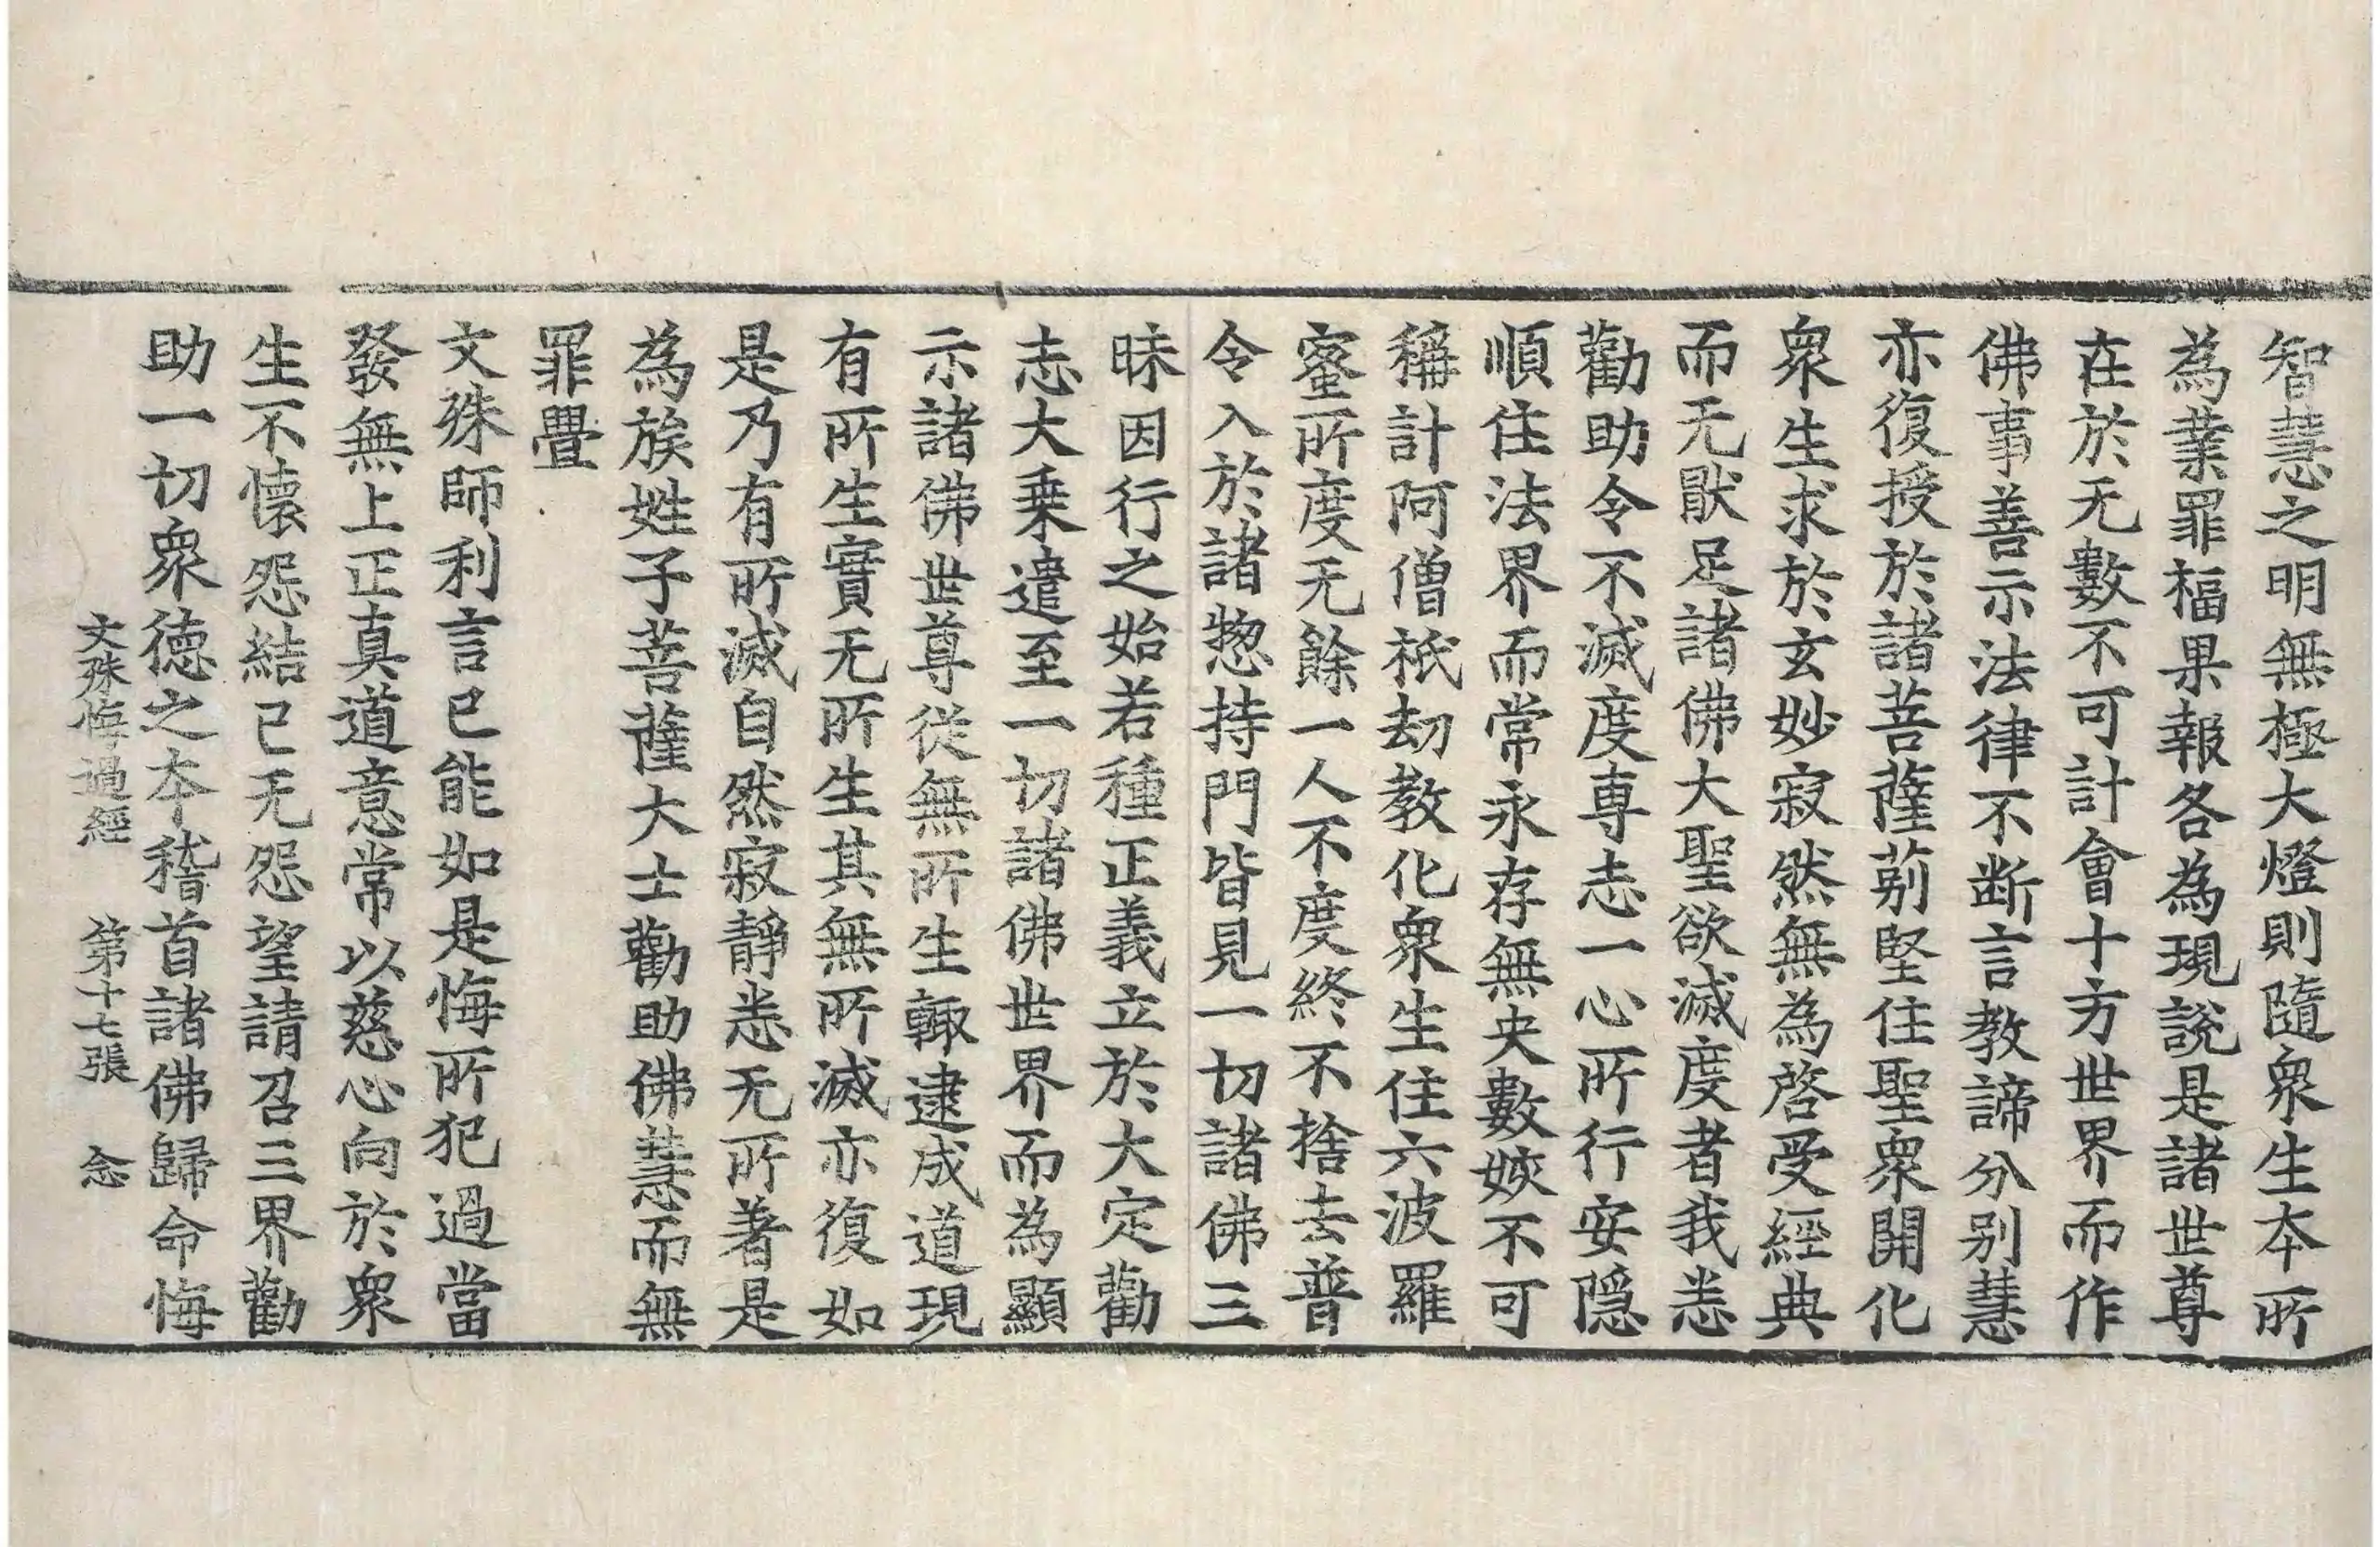 智慧之明無極大燈則隨衆生本所
為業罪福果報各為現說是諸世尊
在於无數不可計會十方世界而作
佛事善示法律不断言教諦分別慧
亦復授於諸菩薩莂堅住聖衆開化
衆生求於玄妙寂然無為啓受經典
而无猒足諸佛大聖欲滅度者我悉
勸助令不滅度専志一心所行安隠
順住法界而常永存無央數姟不可
稱計阿僧祇劫教化衆生住六波羅
蜜所度无餘一人不度終不捨去普
令入於諸惣持門皆見一切諸佛三
昧因行之始若種正義立於大定勸
志大乗遣至一切諸佛世界而為顯
示諸佛世尊従無所生輙逮成道現
有所生實无所生其無所滅亦復如
是乃有所滅自然寂靜悉无所著是
為族姓子菩薩大士勸助佛慧而無
罪舋
文殊師利言已能如是悔所犯過當
發無上正真道意常以慈心向於衆
生不懐怨結已无怨望請召三界勸
助一切衆徳之本稽首諸佛歸命悔
文殊悔過經 第十七張 念